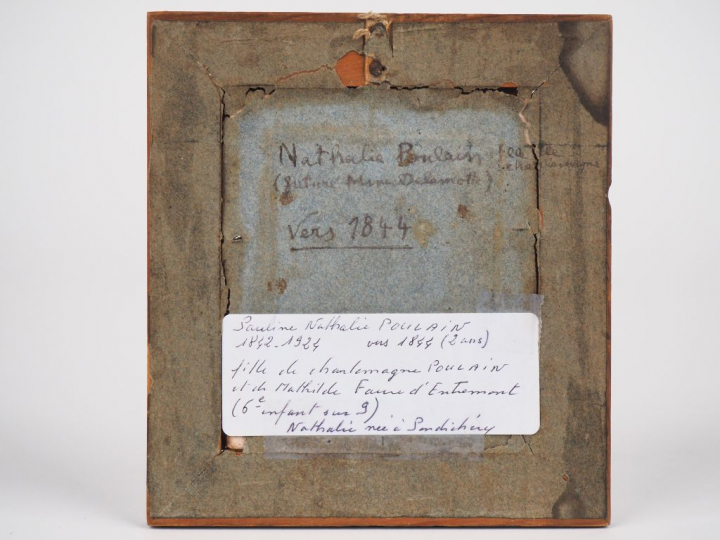 Nathalie Poulain fille de
Charlemagne
(future Mme Delamotte)
Vers 1844
Pauline Nathalie POULAIN
1842-1924 vers 1844 (2 ans)
fille de charlemagne POULAIN
et de Mathilde Faure d'Entremont
(6e enfant sur 9)
Nathalie née à Pondichéry